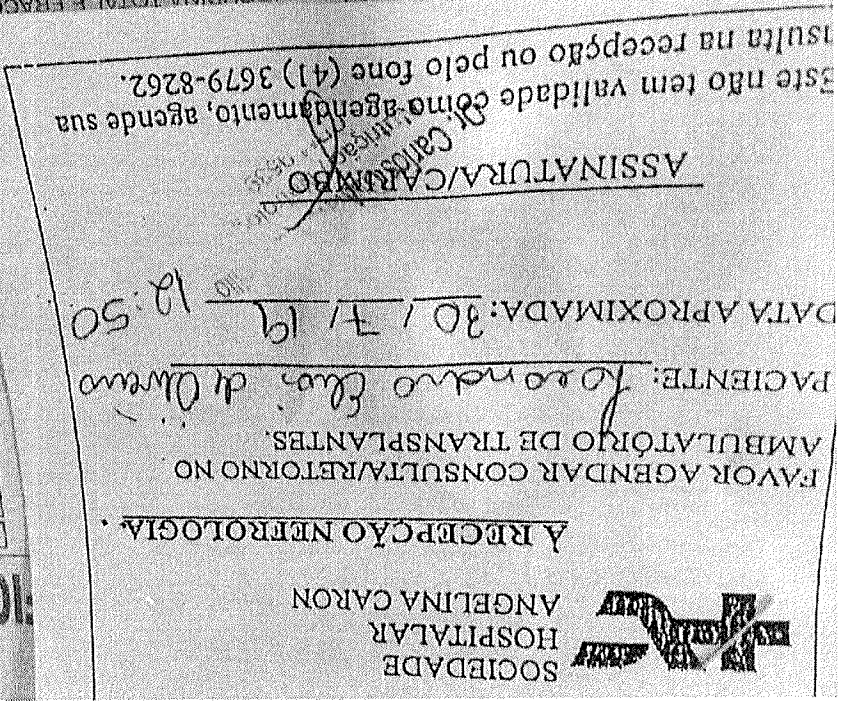 SOCIEDADE
HOSPITALAR
ANGELINA CARON
À RECEPÇÃO NEFROLOGIA.
FAVOR AGENDAR CONSULTA/RETORNO NO
AMBULATÓRIO DE TRANSPLANTES.
PACIENTE: de Oliveira
DATA APROXIMADA: 30 / 7 / 19 12:50
ASSINATURA/CARIMBO
Dr. Carlos
Este não tem validade como agendamento, agende sua
nsulta na recepção ou pelo fone (41) 3679-8262.